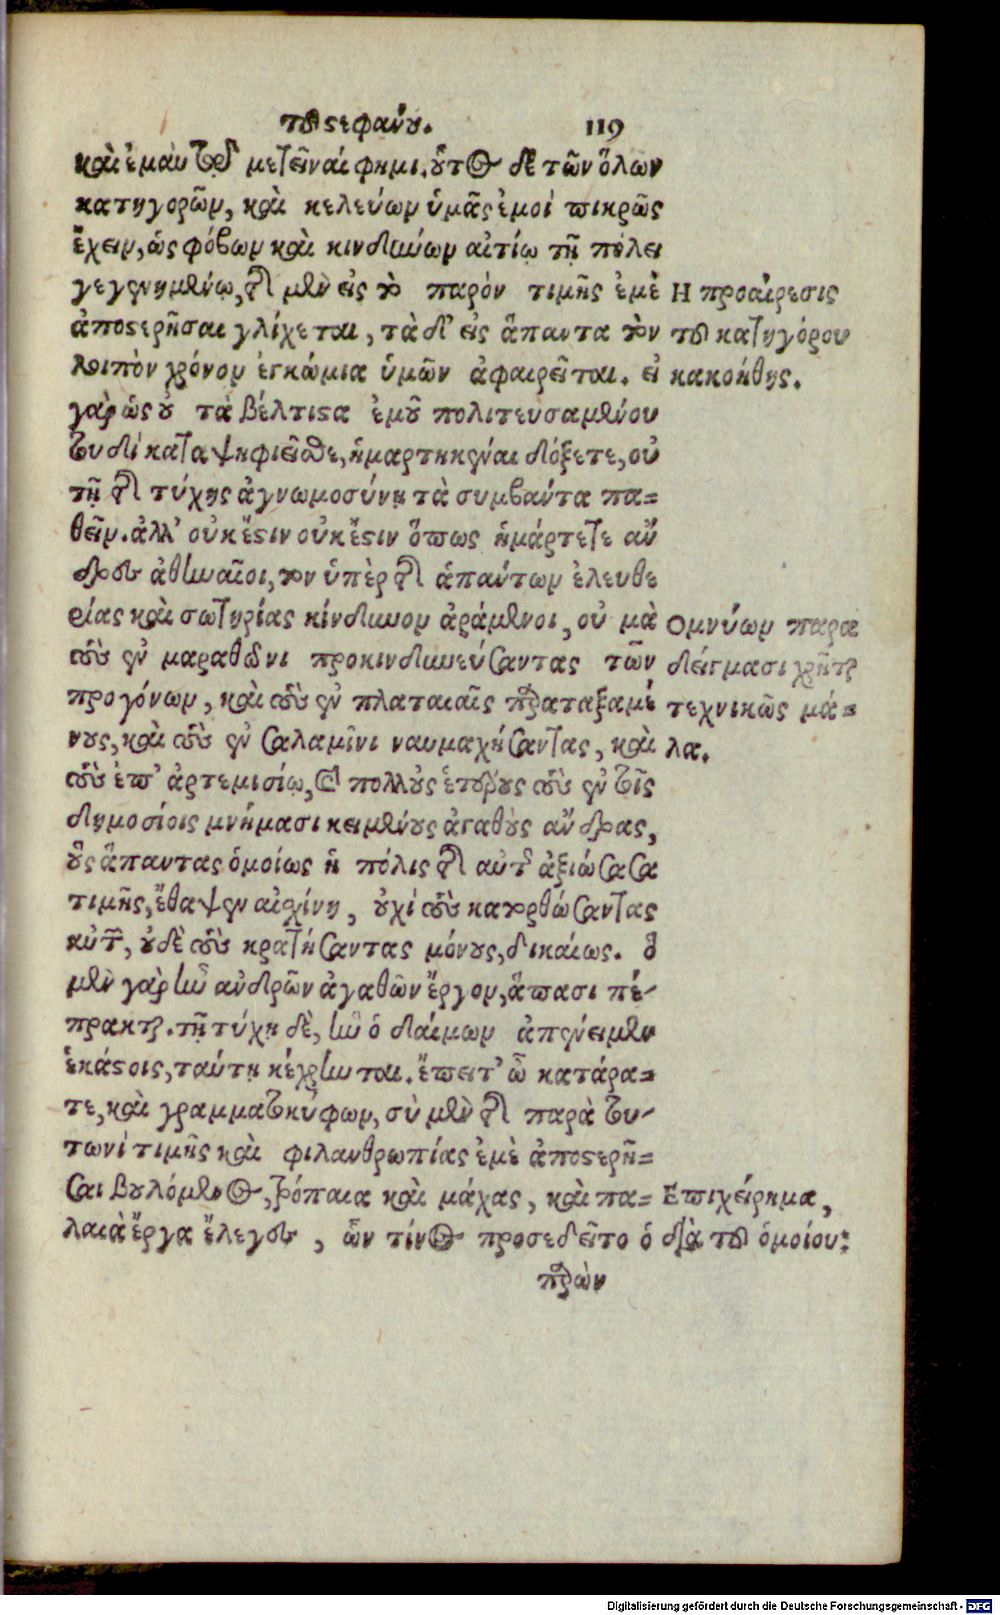 τοῦ στεφάνου. 119
καὶ ἐμαυτῷ μετεῖναί φημι. οὗτος δὲ τῶν ὅλων
κατηγορῶν, καὶ κελεύων ὑμᾶς ἐμοί πικρῶς
ἔχειν, ὡς φόβων καὶ κινδύνων αἰτίῳ τῇ πόλει
γεγενημένῳ, τῆς μὲν εἰς τὸ παρὸν τιμῆς ἐμὲ
ἀποστερῆσαι γλίχεται, τὰ δ' εἰς ἅπαντα τὸν
λοιπὸν χρόνον ἐγκώμια ὑμῶν ἀφαιρεῖται. εἰ
γὰρ ὡς οὐ τὰ βέλτιστα ἐμοῦ πολιτευσαμένου
τουδί καταψηφιεῖσθε, ἡμαρτηκέναι δόξετε, οὐ
τῇ τῆς τύχης ἀγνωμοσύνῃ τὰ συμβάντα πα=
θεῖν. ἀλλ' οὐκ ἔστιν οὐκ ἔστιν ὅπως ἡμάρτετε ἄν
δρες ἀθηναῖοι, τὸν ὑπὲρ τῆς ἁπάντων ἐλευθε
ρίας καὶ σωτηρίας κίνδυνον ἀράμενοι, οὐ μὰ
τοὺς ἐν μαραθῶνι προκινδυνεύσαντας τῶν
προγόνων, καὶ τοὺς ἐν πλαταιαῖς παραταξαμέ
νους, καὶ τοὺς ἐν σαλαμῖνι ναυμαχήσαντας, καὶ
τοὺς ἐπ' ἀρτεμισίῳ, καὶ πολλοὺς ἑτέρους τοὺς ἐν τοῖς
δημοσίοις μνήμασι κειμένους ἀγαθοὺς ἄνδρας,
οὓς ἅπαντας ὁμοίως ἡ πόλις τῆς αὐτῆς ἀξιώσασα
τιμῆς, ἔθαψεν αἰσχίνη, οὐχί τοὺς κατορθώσαντας
αὐτῶν, οὐδὲ τοὺς κρατήσαντας μόνους, δικαίως. ὃ
μὲν γὰρ ἦν ἀνδρῶν ἀγαθῶν ἔργον, ἅπασι πέ-
πρακται. τῇ τύχῃ δὲ, ἣν ὁ δαίμων ἀπένειμεν
ἑκάστοις, ταύτῃ κέχρηνται. ἔπειτ' ὦ κατάρα=
τε, καὶ γραμματοκύφων, σὺ μὲν τῆς παρὰ του-
τωνί τιμῆς καὶ φιλανθρωπίας ἐμὲ ἀποστερῆ=
σαι βουλόμενος, τρόπαια καὶ μάχας, καὶ πα=
λαιὰ ἔργα ἔλεγες, ὧν τίνος προσεδεῖτο ὁ
παρὼν
Η προαίρεσις
τοῦ κατηγόρου
κακοήθης.
Ομνύων παρα
δείγμασι χρῆται
τεχνικῶς μά=
λα.
Επιχείρημα,
διὰ τοῦ ὁμοίου:
Digitalisierung gefördert durch die Deutsche Forschungsgemeinschaft - DFG